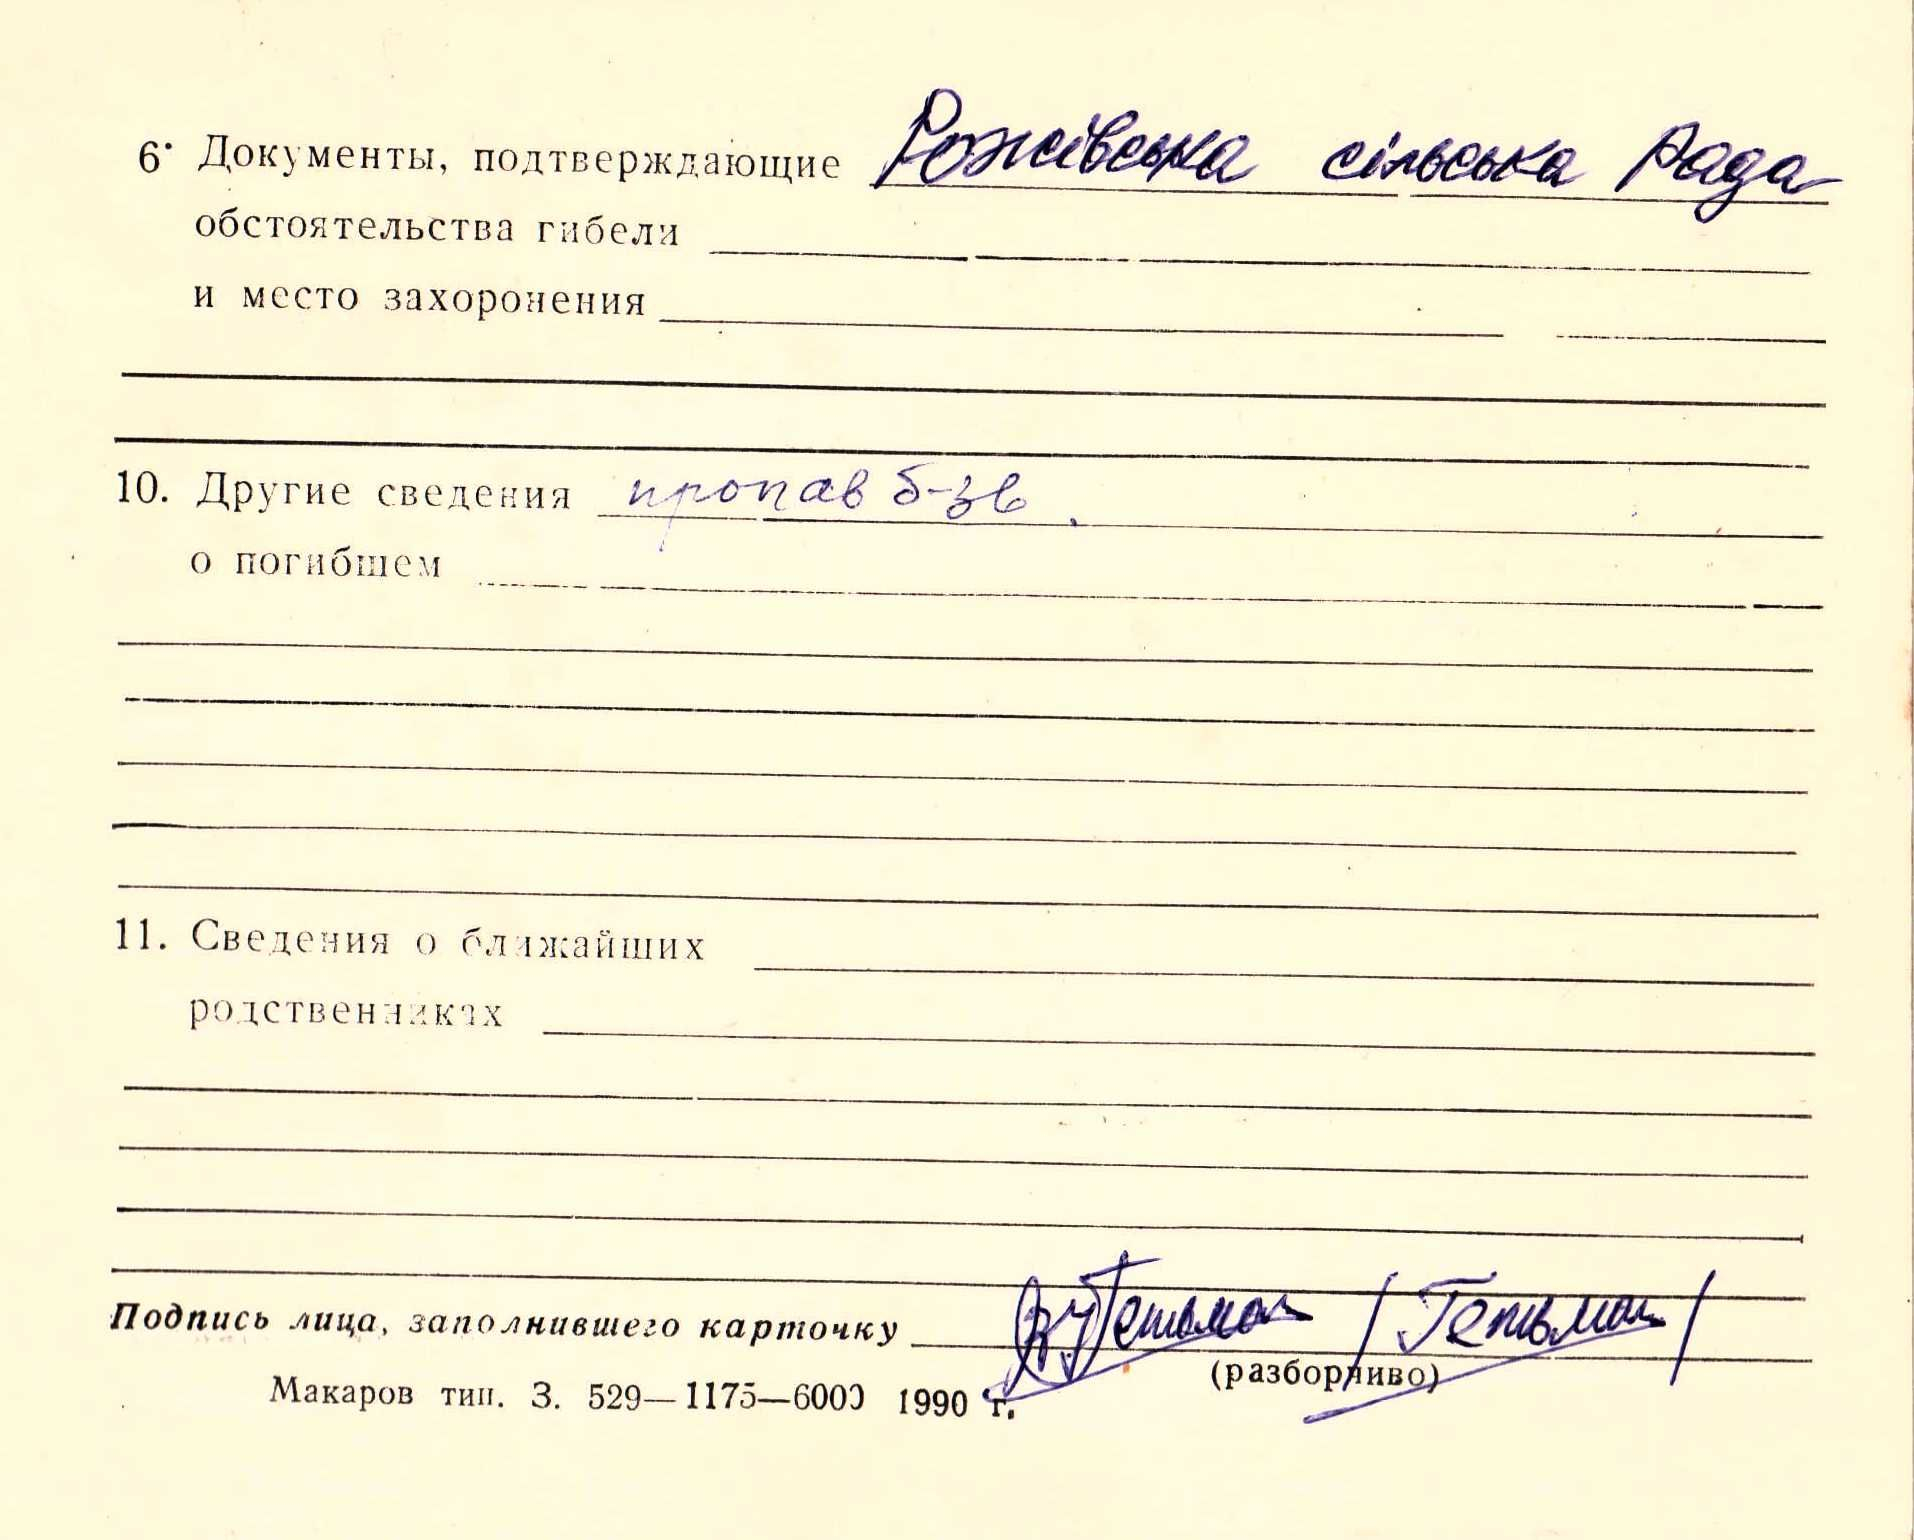 6. Документы, подтверждающие Рожівська сільська рада
обстоятельства гибели
и место захоронения
10. Другие сведения пропав б-зв.
о погибшем
11. Сведения о ближайших
родственниках
Подпись лица, заполнившего карточку Гетьман /Гетьман/
(разборчиво)
Макаров тип. З. 529—1175—6000 1990 г.